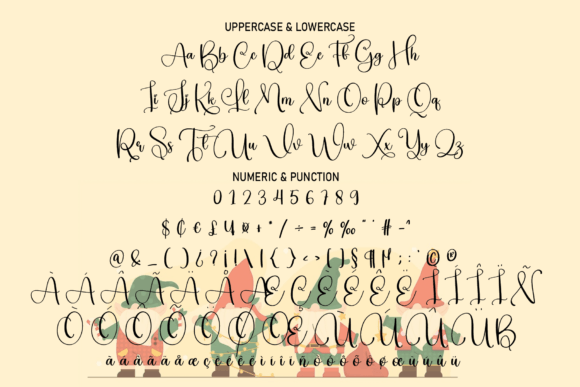 UPPERCASE & LOWERCASE
Aa Bb Cc Dd Ee Ff Gg Hh
Ii Jj Kk Ll Mm Nn Oo Pp Qq
Rr Ss Tt Uu Vv Ww Xx Yy Zz
NUMERIC & PUNCTION
0 1 2 3 4 5 6 7 8 9
$ ¢ € £ U ¤ + * / ÷ = % ‰ " ' # - ^
@ & _ ( ) ¿ ? ¡ ! \ | { } < > [ ] § ¶ , . ; : © ®
À Á Â Ã Ä Å Æ Ç È É Ê Ë Ì Í Î Ï Ñ
Ò Ó Ô Õ Ö Ø Œ Ù Ú Û Ü ß
à á â ã ä å æ ç è é ê ë ì í î ï ñ ò ó ô õ ö ø œ ù ú û ü